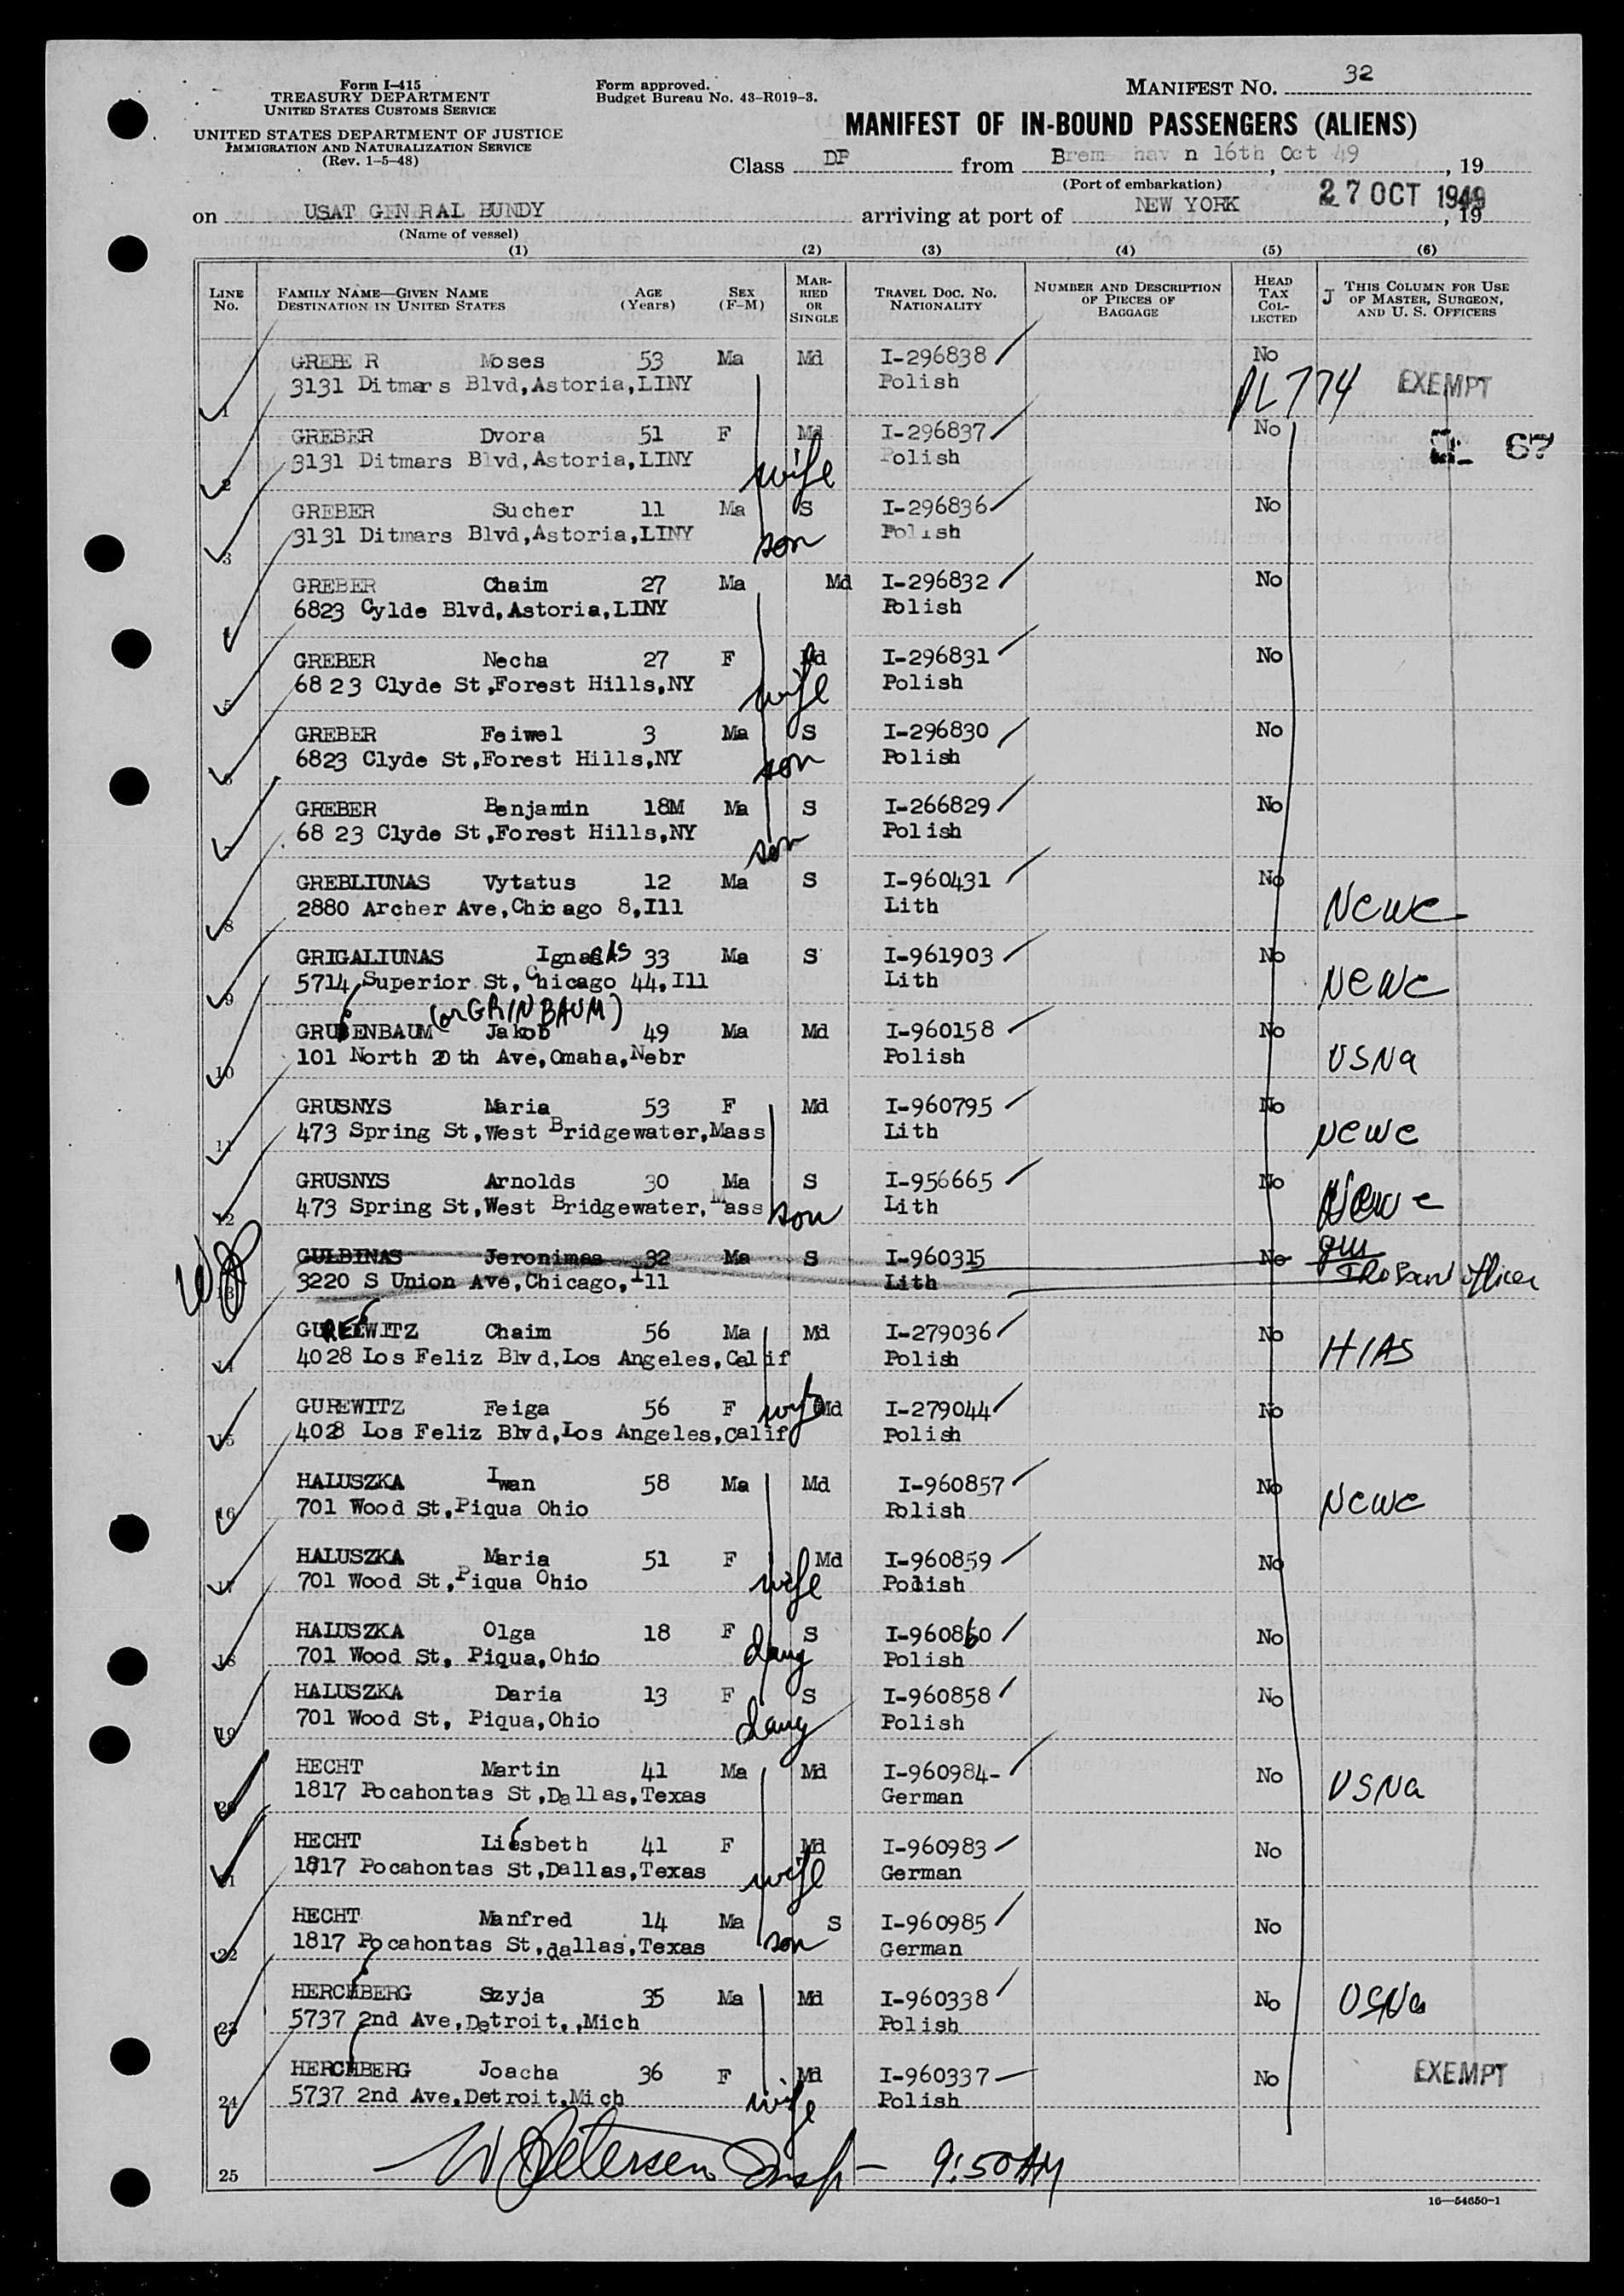 Form I-415
TREASURY DEPARTMENT
UNITED STATES CUSTOMS SERVICE
UNITED STATES DEPARTMENT OF JUSTICE
IMMIGRATION AND NATURALIZATION SERVICE
(Rev. 1-5-48)
Form approved.
Budget Bureau No. 43-R019-3.
MANIFEST NO. 32
MANIFEST OF IN-BOUND PASSENGERS (ALIENS)
Class DP from Brem hav n 16th Oct 49, 19
(Port of embarkation)
on USAT GEN RAL BUNDY arriving at port of NEW YORK 27 OCT 1949, 19
(Name of vessel)
(1) (2) (3) (4) (5) (6)
LINE NO. FAMILY NAME—GIVEN NAME DESTINATION IN UNITED STATES AGE (Years) SEX (F-M) MARRIED OR SINGLE TRAVEL DOC. NO. NATIONALITY NUMBER AND DESCRIPTION OF PIECES OF BAGGAGE HEAD TAX COLLECTED J THIS COLUMN FOR USE OF MASTER, SURGEON, AND U. S. OFFICERS
GREBE R Moses 53 Ma Md I-296838 No
1 3131 Ditmars Blvd,Astoria,LINY Polish PL 774 EXEMPT
GREBER Dvora 51 F Md I-296837 No
2 3131 Ditmars Blvd,Astoria,LINY wife Polish 67
GREBER Sucher 11 Ma S I-296836 No
3 3131 Ditmars Blvd,Astoria,LINY son Polish
GREBER Chaim 27 Ma Md I-296832 No
4 6823 Cylde Blvd,Astoria,LINY Polish
GREBER Necha 27 F Md I-296831 No
5 68 23 Clyde St,Forest Hills,NY wife Polish
GREBER Feiwel 3 Ma S I-296830 No
6 6823 Clyde St,Forest Hills,NY son Polish
GREBER Benjamin 18M Ma S I-266829 No
7 68 23 Clyde St,Forest Hills,NY son Polish
GREBLIUNAS Vytatus 12 Ma S I-960431 No
8 2880 Archer Ave,Chicago 8,Ill Lith NCWC
GRIGALIUNAS Ignas AS 33 Ma S I-961903 No
9 5714 Superior St,Chicago 44,Ill Lith NCWC
(or GRINBAUM)
GRUBENBAUM Jakob 49 Ma Md I-960158 No
10 101 North 20 th Ave,Omaha,Nebr Polish USNA
GRUSNYS Maria 53 F Md I-960795 No
11 473 Spring St,West Bridgewater,Mass Lith NCWC
GRUSNYS Arnolds 30 Ma S I-956665 No
12 473 Spring St,West Bridgewater,Mass son Lith NCWC
GULBINAS Jeronimas 32 Ma S I-960315 No
13 3220 S Union Ave,Chicago,Ill Lith officer
GUREWITZ Chaim 56 Ma Md I-279036 No
14 4028 Los Feliz Blvd,Los Angeles,Calif Polish HIAS
GUREWITZ Feiga 56 F Md I-279044 No
15 4028 Los Feliz Blvd,Los Angeles,Calif wife Polish
HALUSZKA Iwan 58 Ma Md I-960857 No
16 701 Wood St,Piqua Ohio Polish NCWC
HALUSZKA Maria 51 F Md I-960859 No
17 701 Wood St,Piqua Ohio wife Polish
HALUSZKA Olga 18 F S I-960860 No
18 701 Wood St, Piqua,Ohio daug Polish
HALUSZKA Daria 13 F S I-960858 No
19 701 Wood St, Piqua,Ohio daug Polish
HECHT Martin 41 Ma Md I-960984- No
20 1817 Pocahontas St,Dallas,Texas German USNA
HECHT Liesbeth 41 F Md I-960983 No
21 1817 Pocahontas St,Dallas,Texas wife German
HECHT Manfred 14 Ma S I-960985 No
22 1817 Pocahontas St,dallas,Texas son German
HERCHBERG Szyja 35 Ma Md I-960338 No USNA
23 5737 2nd Ave,Detroit,,Mich Polish
HERCHBERG Joacha 36 F Md I-960337 No EXEMPT
24 5737 2nd Ave,Detroit,Mich wife Polish
25 W Petersen Insp — 9:50 AM
16—54650-1